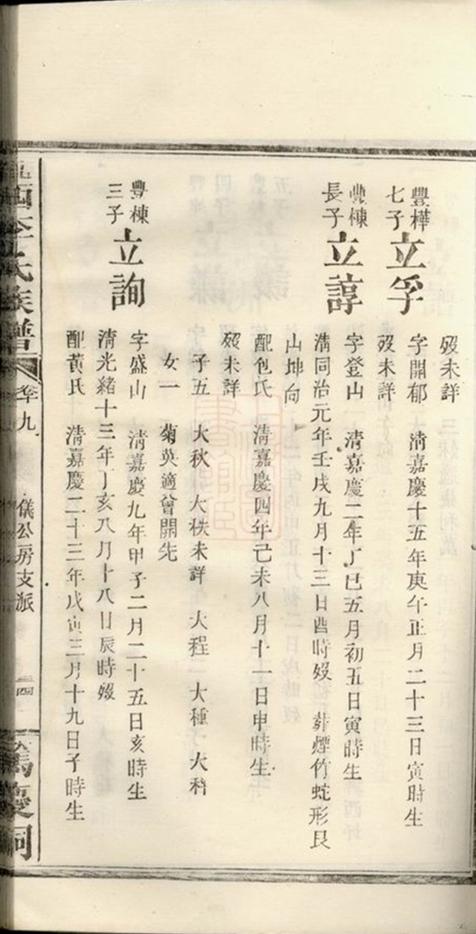 歿未詳
豐樺
七子
立孚
字開郁 清嘉慶十五年庚午正月二十三日寅時生
歿未詳
豐棟
長子
立諄
字登山 清嘉慶二年丁巳五月初五日寅時生
清同治元年壬戌九月十三日酉時歿 葬煙竹蛇形艮
山坤向
配包氏 清嘉慶四年己未八月十一日申時生
歿未詳
子五 大秋 大秩未詳 大程 大種 大稍
女一 菊英適曾開先
豐棟
三子
立詢
字盛山 清嘉慶九年甲子二月二十五日亥時生
清光緒十三年丁亥八月十八日辰時歿
配黃氏 清嘉慶二十三年戊寅三月十九日子時生
氏族譜
卷九
儀公房支派
四
慶祠